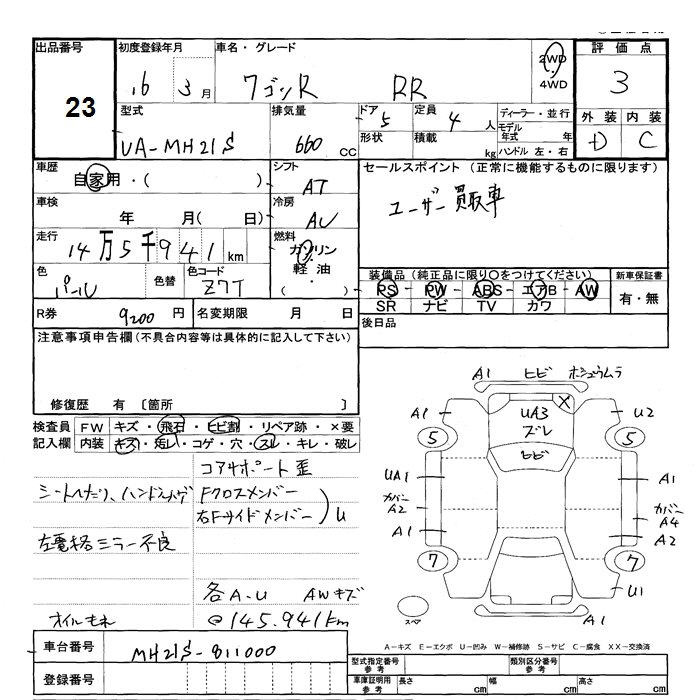 出品番号 初度登録年月 車名・グレード 2WD 4WD 評価点
23 16 3月 ワゴンR RR 3
型式 排気量 ドア 5 定員 4人 ディーラー・並行 外装 内装
UA-MH21S 660 CC 形状 積載 kg モデル年式 年 ハンドル 左・右 D C
車歴 自家用・( ) シフト AT セールスポイント (正常に機能するものに限ります)
車検 年 月( 日) 冷房 ユーザー買取車
走行 14万5千941km 燃料 ガソリン 軽油 ( ・ )
色 パール 色替 色コード Z7T 装備品(純正品に限り○をつけてください) 新車保証書
PS・PW・ABS・エアB・AW 有・無
SR ナビ TV カワ
R券 9200円 名変期限 月 日 後日品
注意事項申告欄(不具合内容等は具体的に記入して下さい)
修復歴 有〔箇所 〕
検査員 FW キズ・飛石・ヒビ割・リペア跡・×要
記入欄 内装 キズ・汚レ・コゲ・穴・スレ・キレ・破レ
コアサポート歪
シートへたり、ハンドルハゲ Fクロスメンバー
右Fサイドメンバー )U
左電格ミラー不良
各A.U AWキズ
オイルもれ @145.941km
A1 ヒビ ホシュウムラ
A1 UA3 ズレ × U2
5 ヒビ 5
UA1 A1
カバーA2 カバーA4
A1 A2
7 7
U1
スペア A1
A-キズ E-エクボ U-凹み W-補修跡 S-サビ C-腐食 XX-交換済
車台番号 MH21S-811000
登録番号
型式指定番号 参考 類別区分番号 参考
車庫証明用 参考 長さ cm 幅 cm 高さ cm